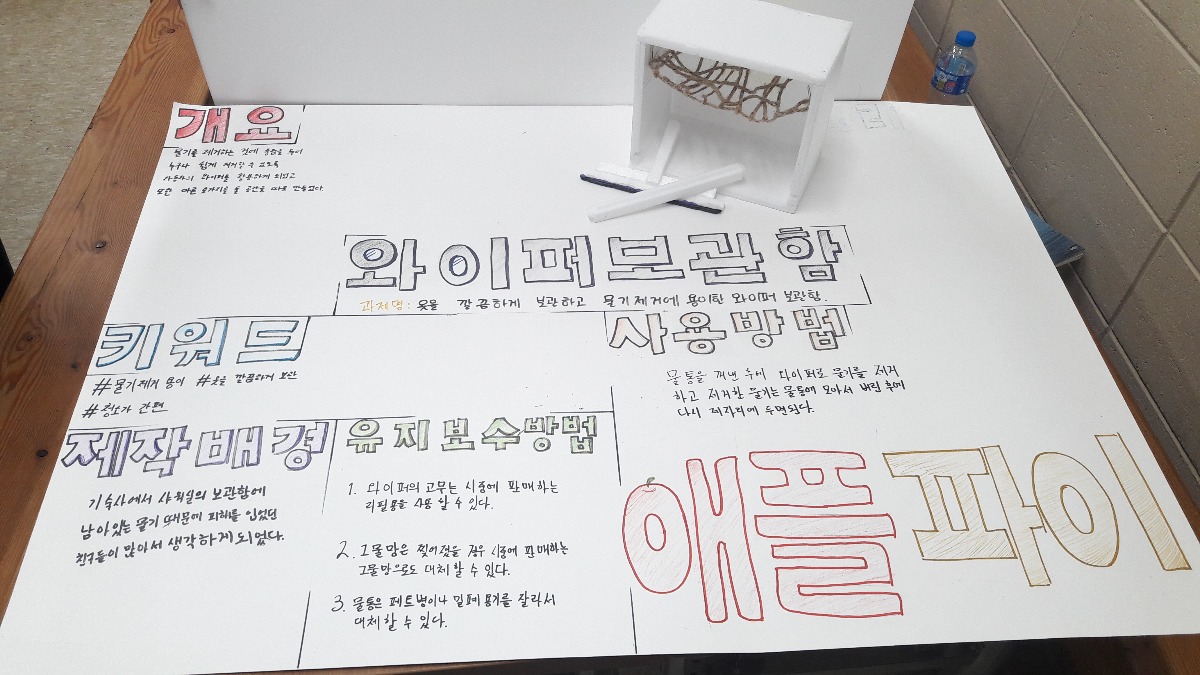 개요
물기를 제거하는 것에 중점을 두어
누구나 쉽게 제거할 수 있도록
사용하기 와이퍼를 활용하게 되었고
또한 마른 옷가지를 둘 공간을 따로 만들었다.
와이퍼보관함
과제명: 옷을 깔끔하게 보관하고 물기제거에 용이한 와이퍼 보관함.
키워드
#물기제거 용이 #옷을 깔끔하게 보관
#청소가 간편
사용방법
물통을 꺼낸 후에 와이퍼로 물기를 제거
하고 제거한 물기는 물통에 모아서 버린 후에
다시 제자리에 두면된다.
제작배경
기숙사에서 샤워실의 보관함에
남아있는 물기 때문에 피해를 입었던
친구들이 많아서 생각하게 되었다.
유지보수방법
1. 와이퍼의 고무는 시중에 판매하는
리필용을 사용 할 수 있다.
2. 그물망은 찢어졌을 경우 시중에 판매하는
그물망으로도 대체할 수 있다.
3. 물통은 페트병이나 밀폐용기를 잘라서
대체할 수 있다.
애플파이